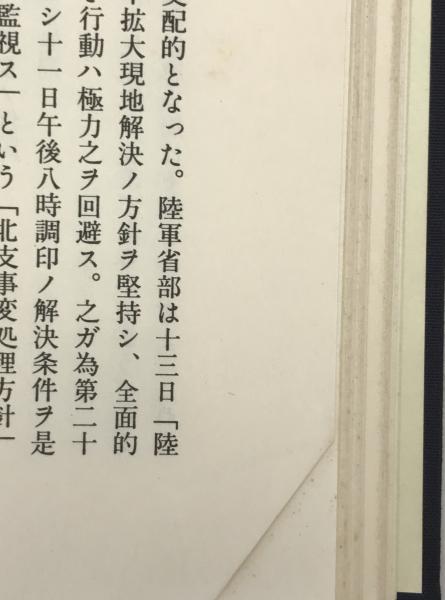 支配的となった。陸軍省部は十三日「陸
拡大現地解決ノ方針ヲ堅持シ、全面的
行動ハ極力之ヲ回避ス。之ガ為第二十
シ十一日午後八時調印ノ解決条件ヲ是
監視ス」という「北支事変処理方針」